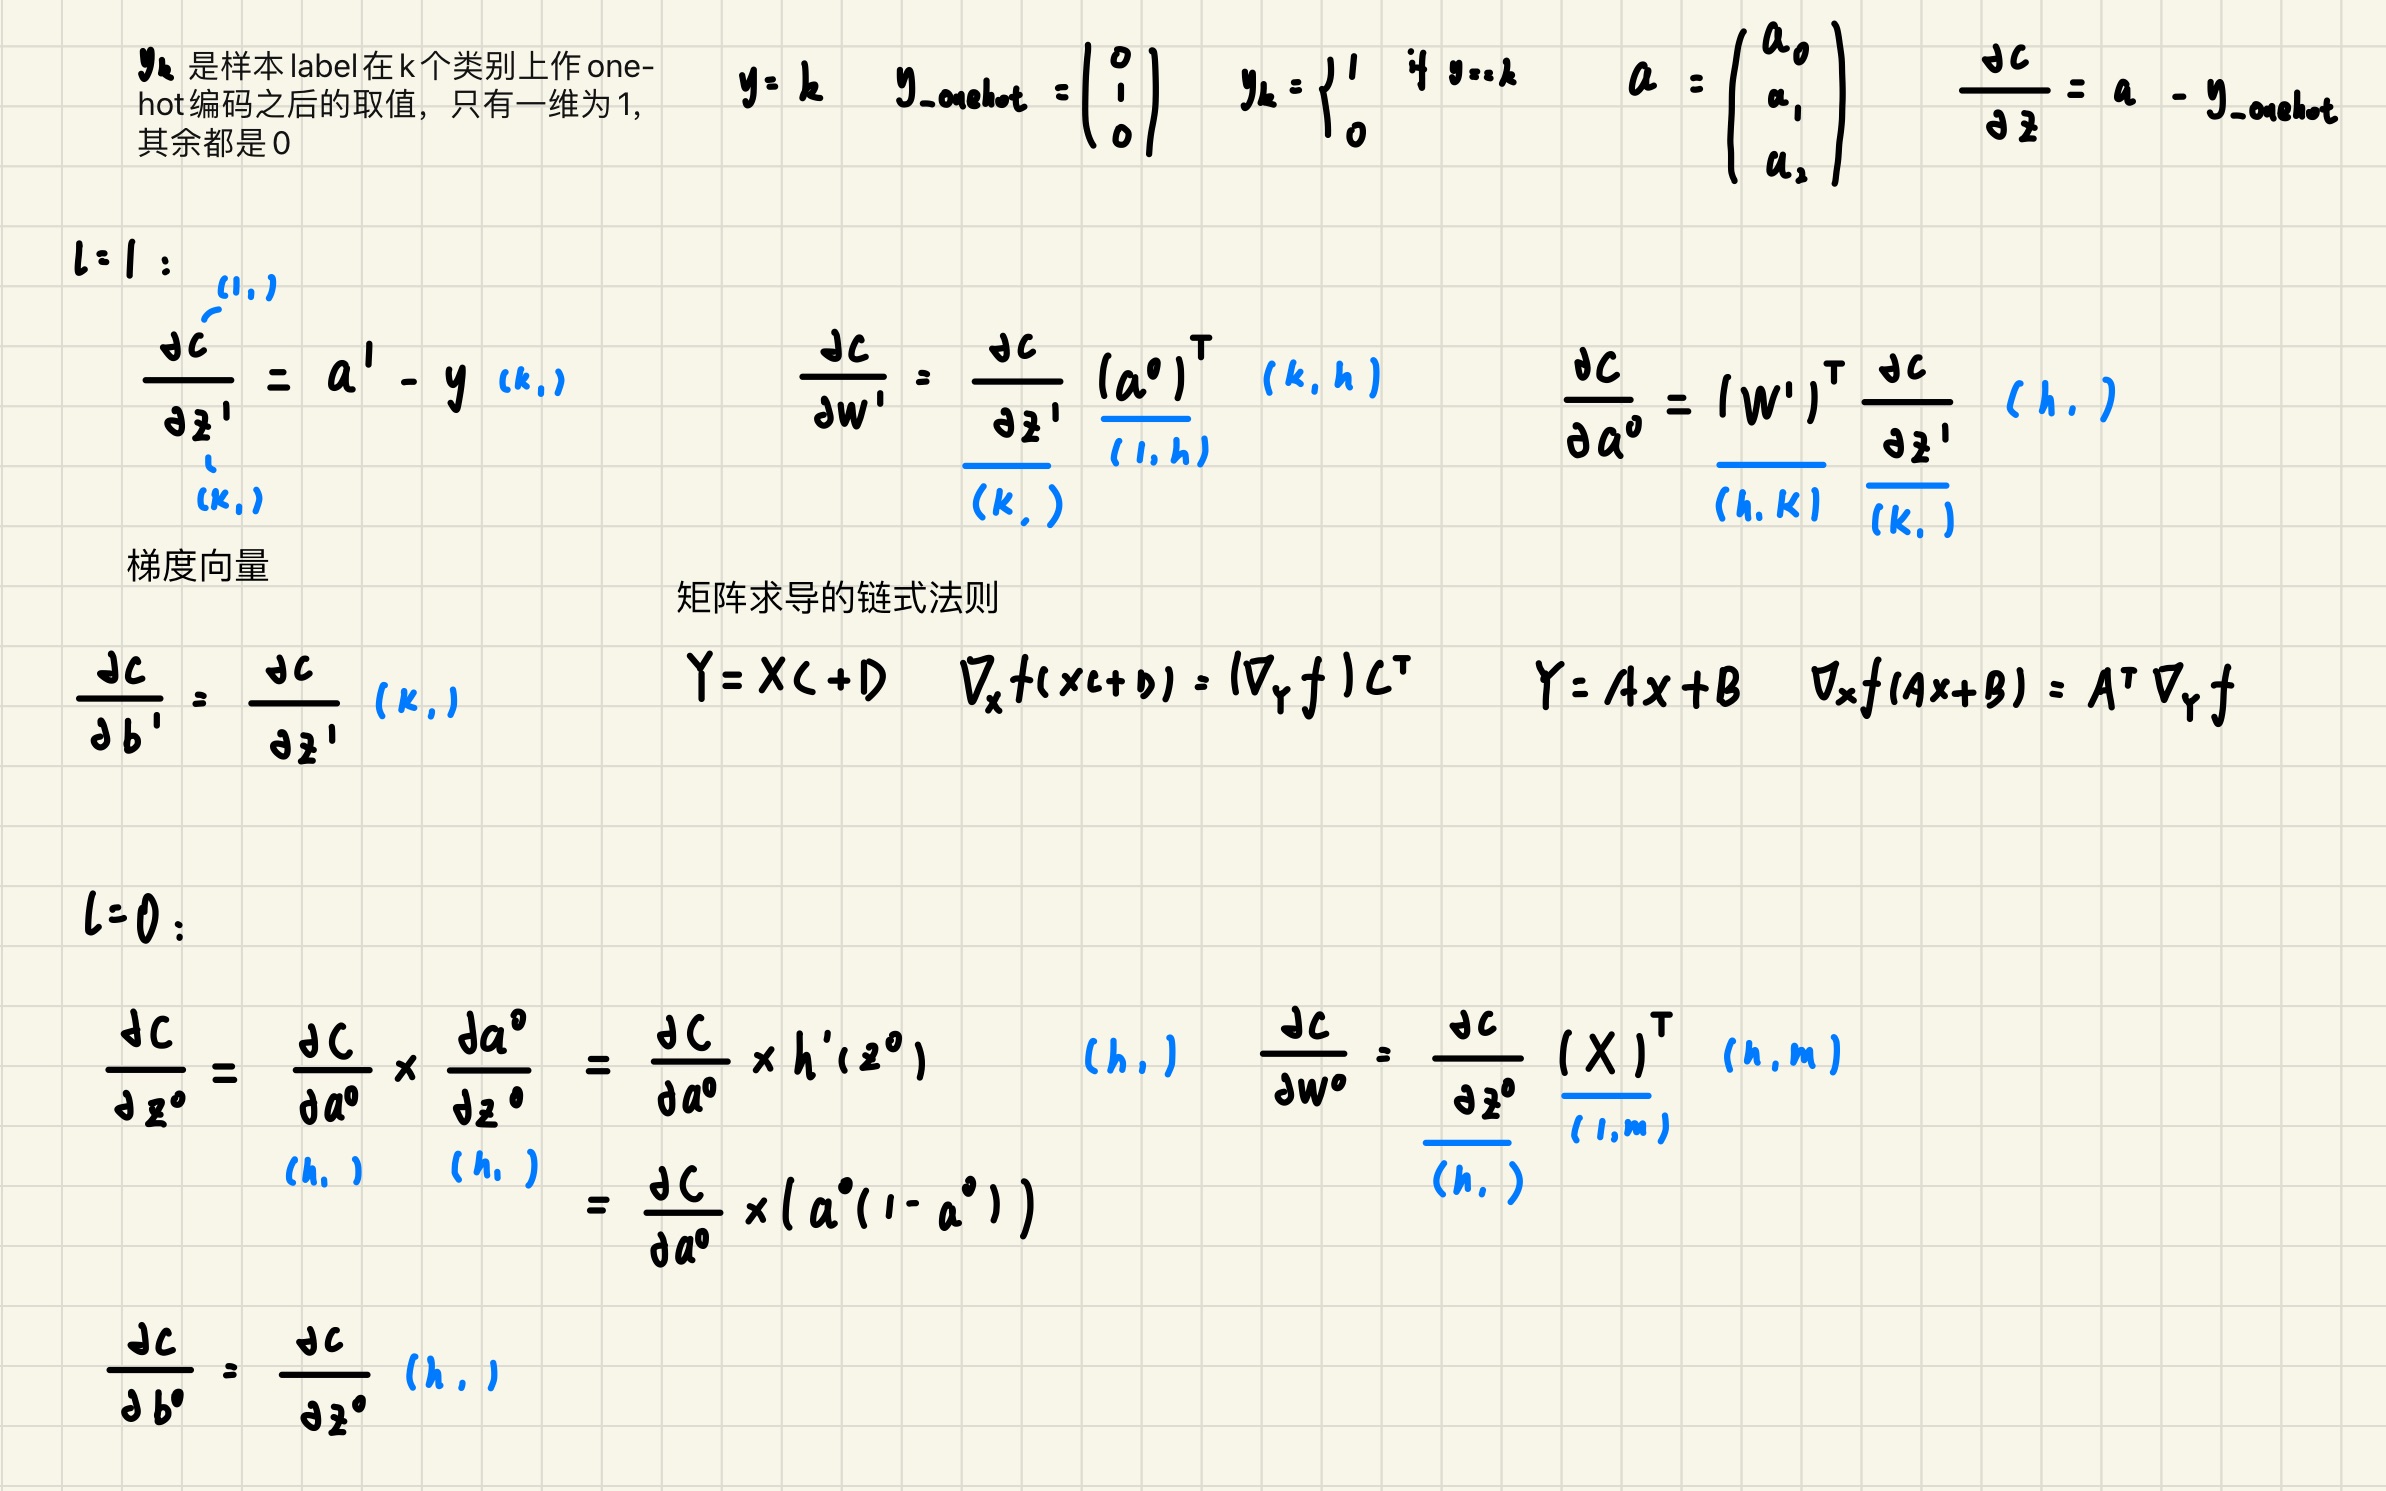 y_k 是样本 label 在 k 个类别上作 one-
hot 编码之后的取值，只有一维为 1,
其余都是 0
y = k   y_onehot = (0 1 0)   y_k = { 1 if y == k   0   a = (a_0 a_1 a_2)   ∂c/∂z = a - y_onehot
l = 1 :
(1,)
∂c/∂z^1 = a^1 - y (k,)   ∂c/∂w^1 = ∂c/∂z^1 (a^0)^T (k, h)   ∂c/∂a^0 = (W^1)^T ∂c/∂z^1 (h,)
(k,)   (k,)   (1, h)   (h, k)   (k,)
梯度向量
矩阵求导的链式法则
∂c/∂b^1 = ∂c/∂z^1 (k,)   Y = XC + D   ∇_x f(XC+D) = (∇_Y f) C^T   Y = AX + B   ∇_x f(AX+B) = A^T ∇_Y f
l = 0 :
∂C/∂z^0 = ∂C/∂a^0 × ∂a^0/∂z^0 = ∂C/∂a^0 × h'(z^0)   (h,)   ∂c/∂w^0 = ∂c/∂z^0 (X)^T (h, m)
(h,)   (h,)   (h,)   (1, m)
= ∂C/∂a^0 × (a^0(1 - a^0))
∂c/∂b^0 = ∂c/∂z^0 (h,)